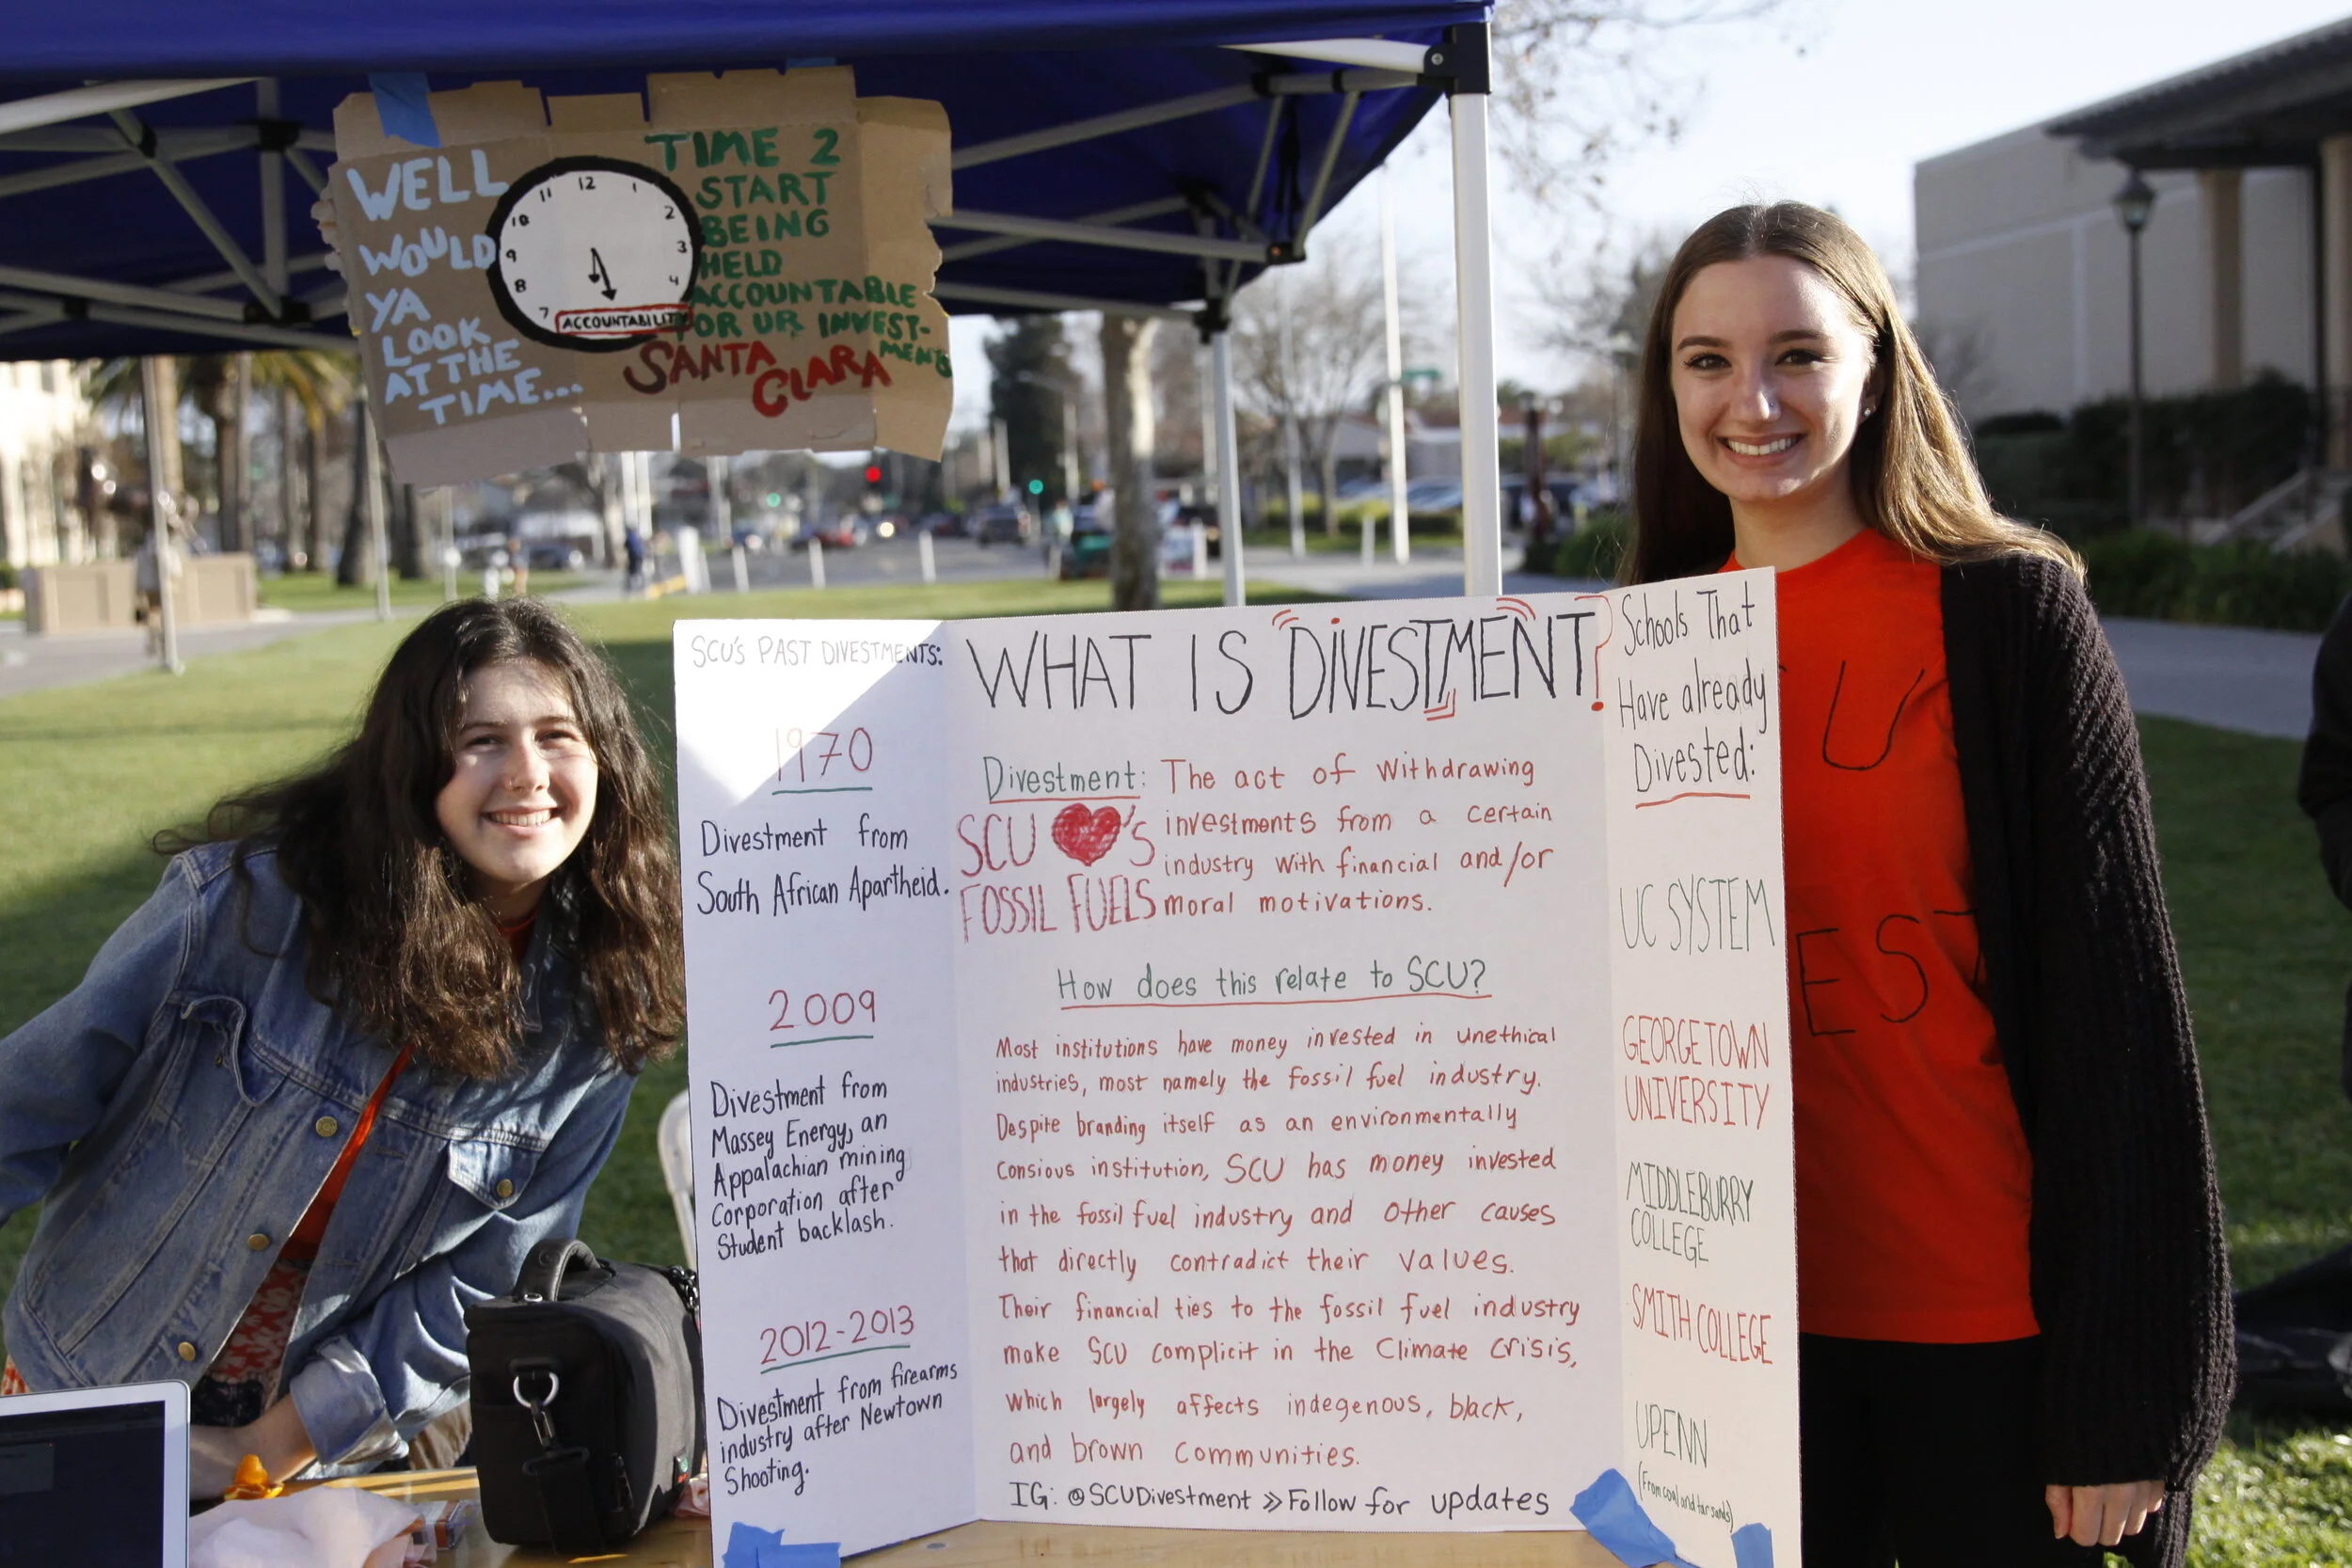 WELL
WOULD
YA
LOOK
AT THE
TIME...
11 12 1
10 2
9 3
8 4
7
ACCOUNTABILITY
TIME 2
START
BEING
HELD
ACCOUNTABLE
FOR UR INVEST-
MENTS
SANTA
CLARA
SCU'S PAST DIVESTMENTS:
1970
Divestment from
South African Apartheid.
2009
Divestment from
Massey Energy, an
Appalachian mining
Corporation after
Student backlash.
2012-2013
Divestment from firearms
industry after Newtown
Shooting.
WHAT IS DIVESTMENT?
Divestment: The act of withdrawing
investments from a certain
industry with financial and/or
moral motivations.
SCU ❤'S
FOSSIL FUELS
How does this relate to SCU?
Most institutions have money invested in unethical
industries, most namely the fossil fuel industry.
Despite branding itself as an environmentally
consious institution, SCU has money invested
in the fossil fuel industry and other causes
that directly contradict their values.
Their financial ties to the fossil fuel industry
make SCU complicit in the Climate Crisis,
which largely affects indegenous, black,
and brown communities.
IG: @SCUDivestment >> Follow for updates
Schools That
Have already
Divested:
UC SYSTEM
GEORGETOWN
UNIVERSITY
MIDDLEBURRY
COLLEGE
SMITH COLLEGE
UPENN
(From coal and tar sands)
U
EST